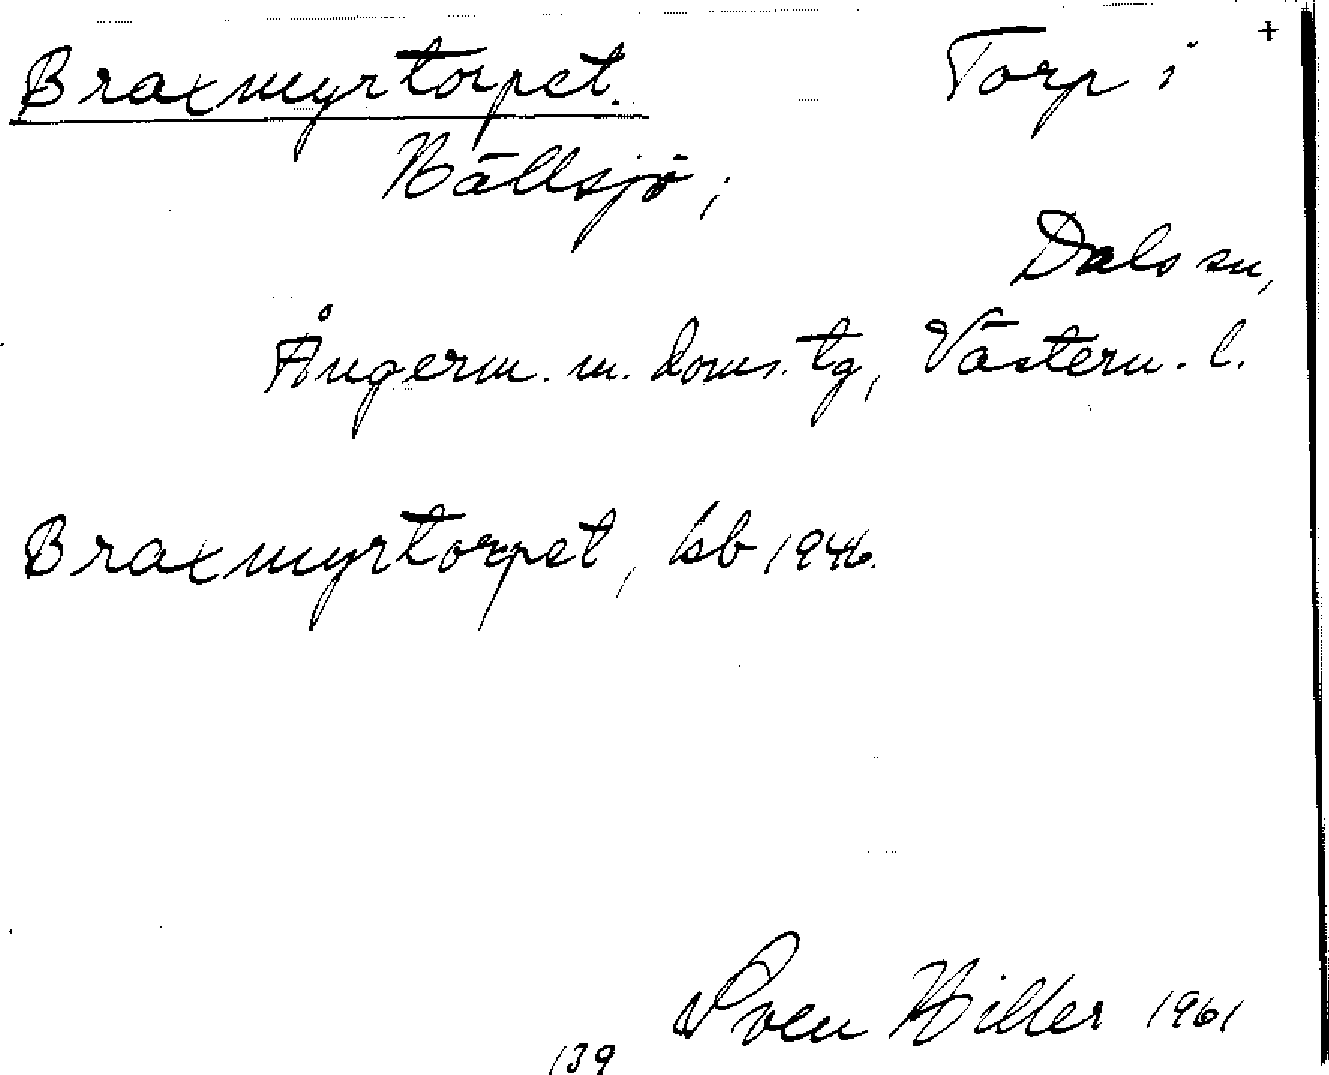 Braxmyrtorpet. Torp i +
Hällsjö,
Dals sn,
Ångerm. m. doms. tg, Västern. l.
Braxmyrtorpet, kb 1946.
Sven Hiller 1961
139